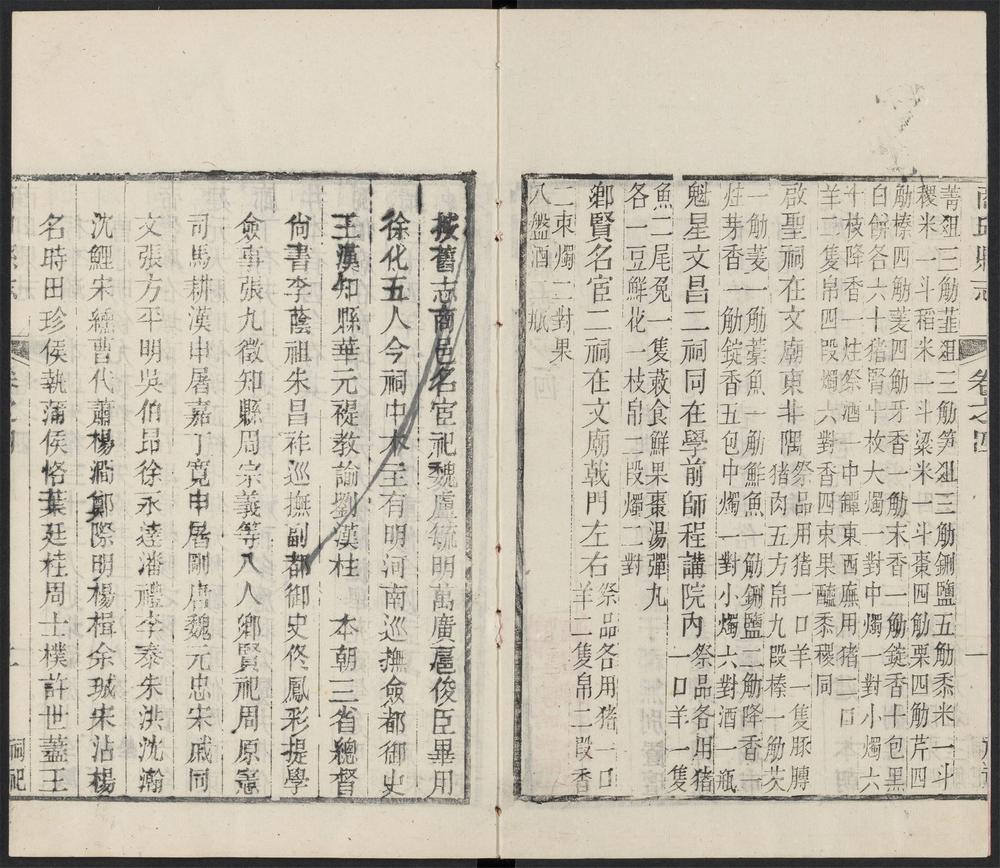 商邱縣志 卷之四
菁𦵔三觔韮𦵔三觔笋𦵔三觔鉶鹽五觔黍米一斗
稷米一斗稻米一斗粱米一斗棗四觔栗四觔芹四
觔榛四觔菱四觔牙香一觔末香一觔錠香十包黑
白餅各六十猪腎十枚大燭一對中燭一對小燭六
十枝降香一炷祭酒一中罈東西廡用猪二口
羊二隻帛四段燭六對香四束果醯黍稷同
啟聖祠在文廟東北隅祭品用猪一口羊一隻豚膊
猪肉五方帛九段榛一觔芡
一觔菱一觔藁魚一觔鮮魚一觔鉶鹽二觔降香一
炷芽香一觔錠香五包中燭一對小燭六對酒一瓶
魁星文昌二祠同在學前師程講院內祭品各用猪
一口羊一隻
魚二尾兔一隻蔌食鮮果棗湯彈九
各一豆鮮花一枝帛二段燭二對
鄉賢名宦二祠在文廟戟門左右祭品各用猪一口
羊二隻帛二段香
二束燭二對果
八盤酒一瓶
按舊志商邑名宦祀魏盧毓明萬廣扈俊臣畢用
徐化五人今祠中木主有明河南巡撫僉都御史
王漢知縣華元禔教諭劉漢柱 本朝三省總督
尚書李蔭祖朱昌祚巡撫副都御史佟鳳彩提學
僉事張九徵知縣周宗義等八人鄉賢祀周原憲
司馬耕漢申屠嘉丁寬申屠剛唐魏元忠宋戚同
文張方平明吳伯昂徐永達潘禮李泰朱洪沈瀚
沈鯉宋纁曹代蕭楊澗鄭際明楊楫余珹宋沾楊
名時田珍侯執蒲侯恪葉廷桂周士樸許世藎王
祠祀